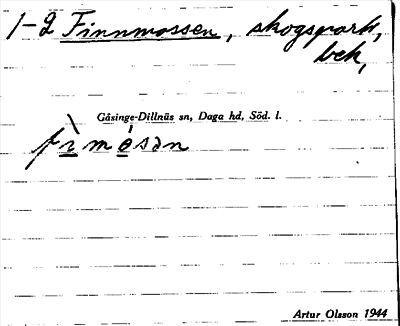 1-2 Finnmossen, skogspark,
bek,
Gåsinge-Dillnäs sn, Daga hd, Söd. l.
fìmésən
Artur Olsson 1944